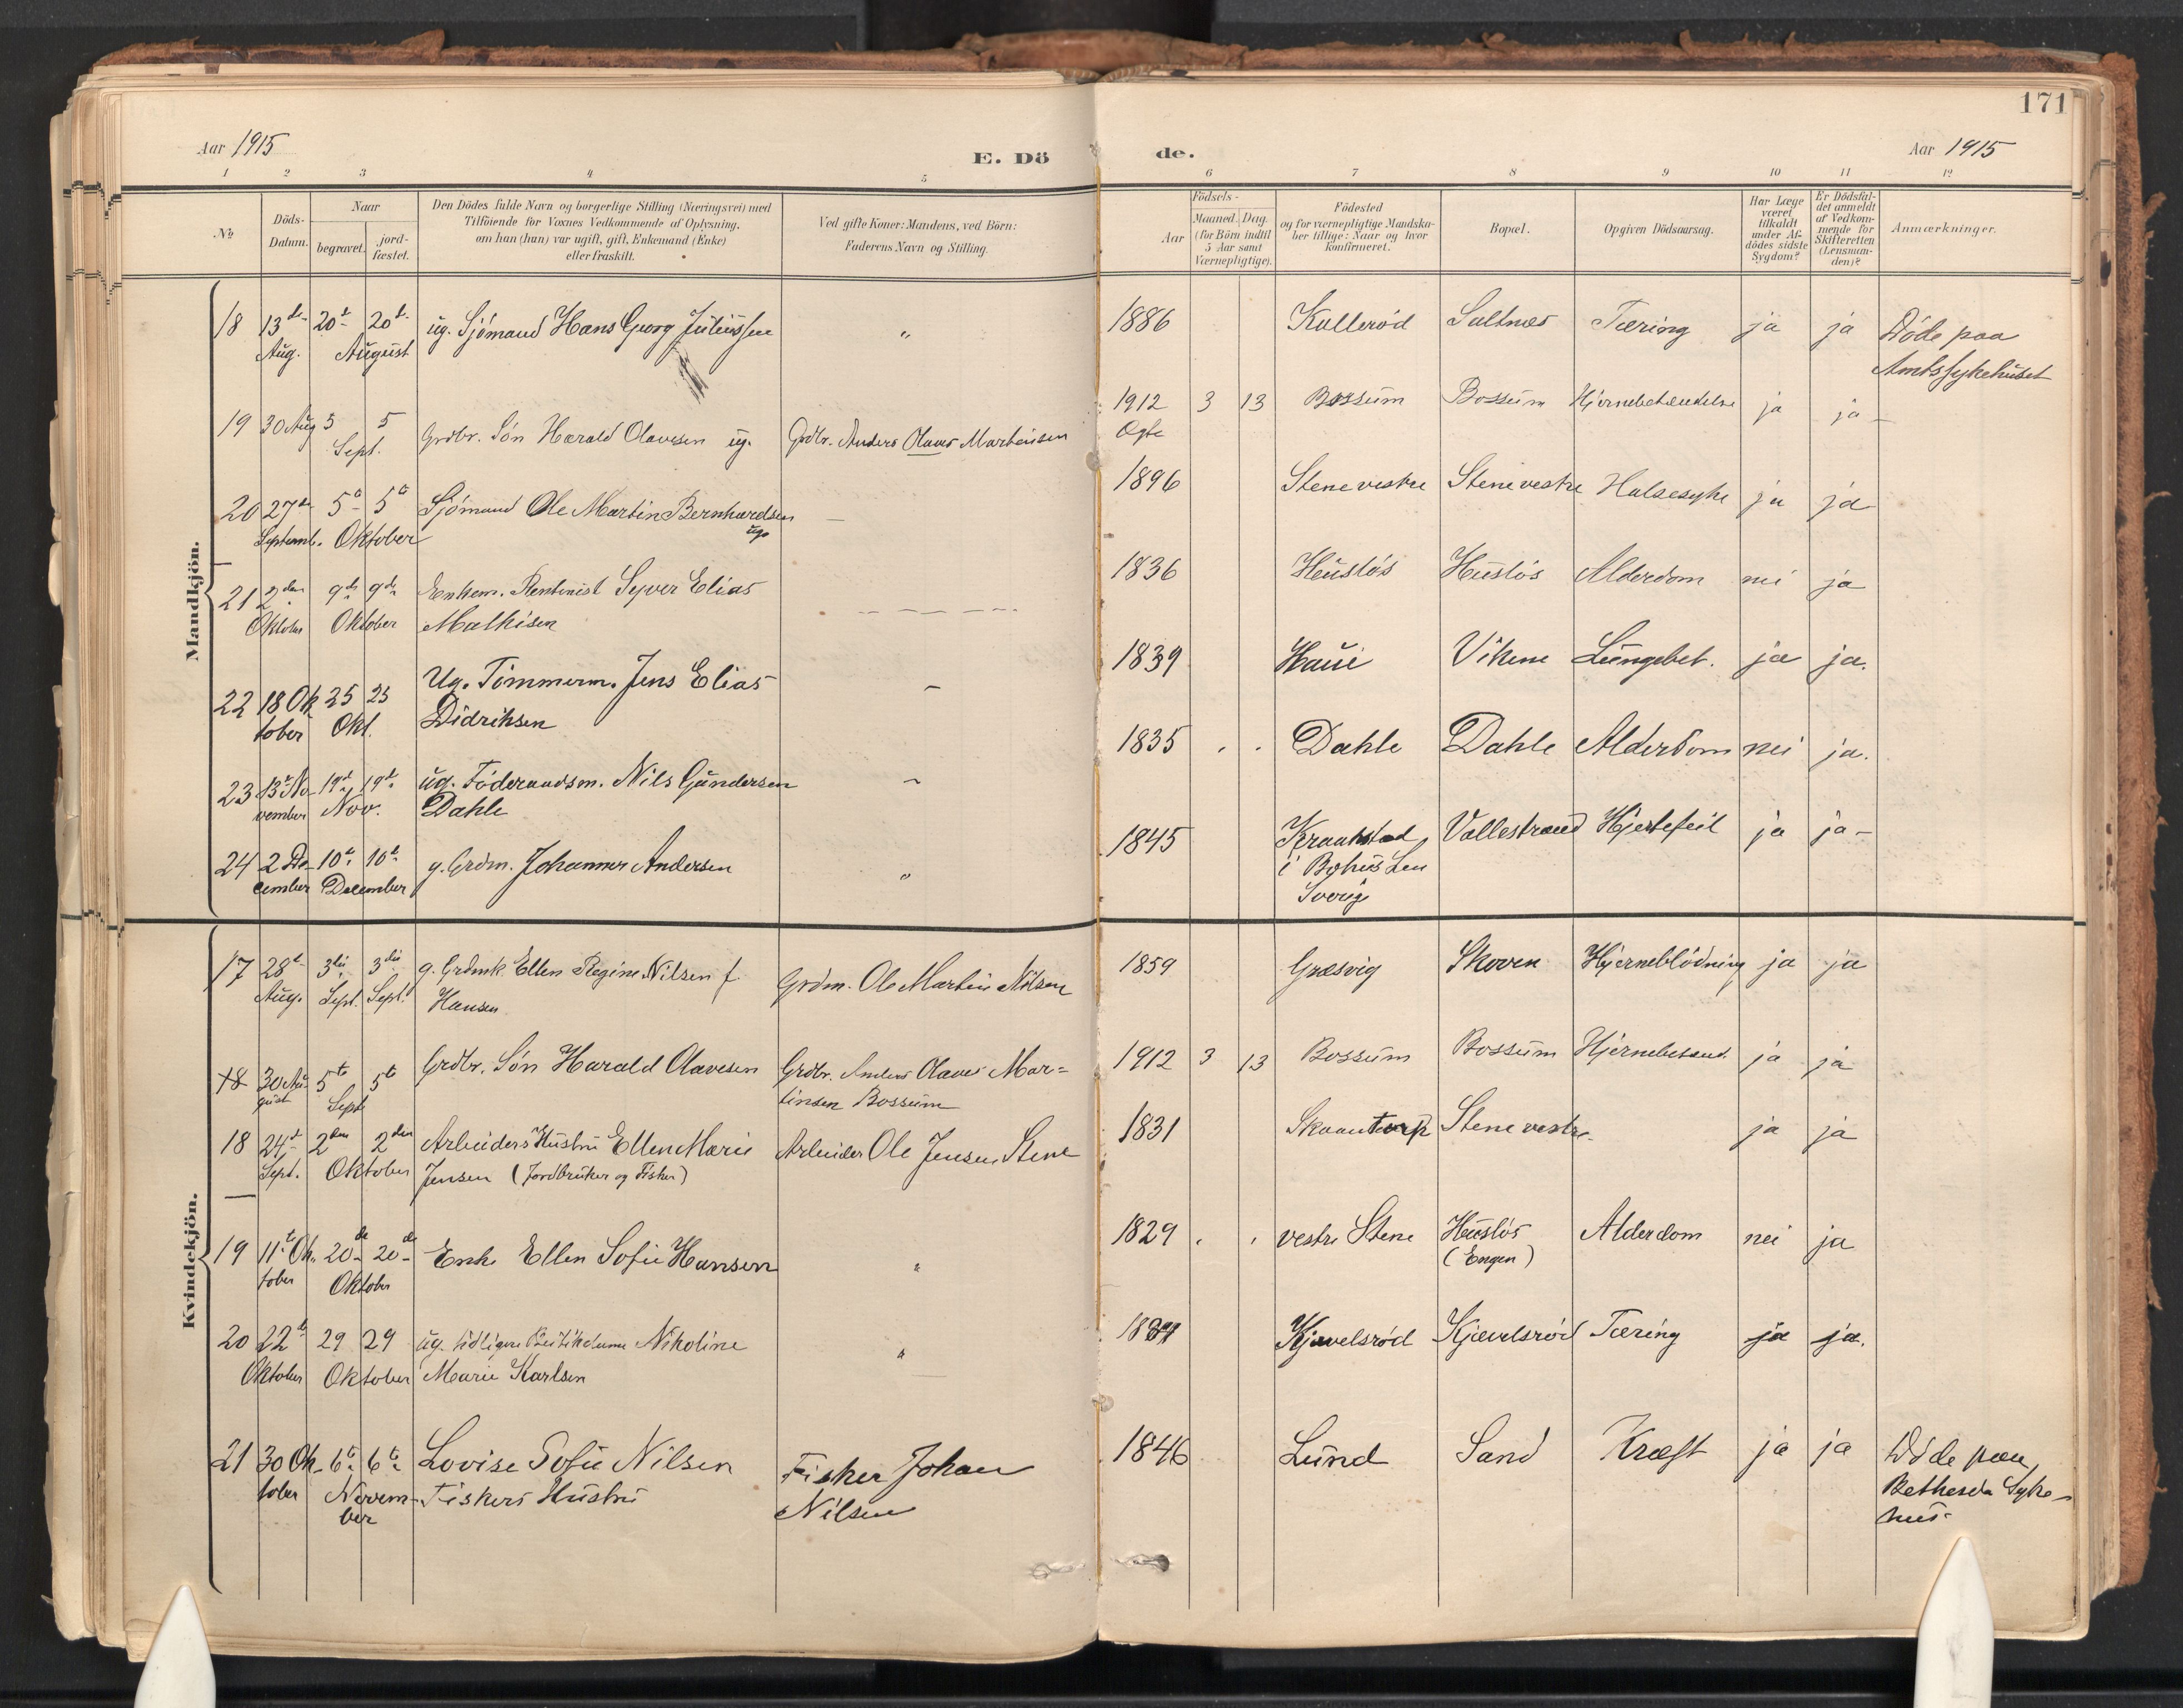 171
Aar 1915
E. Dö
de.
Aar 1915
1 2 3 4 5
6 7 8 9 10 11 12
No
Döds-
Datum.
Naar
begravet.
jord-
fæstet.
Den Dödes fulde Navn og borgerlige Stilling (Næringsvei) med
Tilföiende for Voxnes Vedkommende af Oplysning,
om han (hun) var ugift, gift, Enkemand (Enke)
eller fraskilt.
Ved gifte Koner: Mandens, ved Börn:
Faderens Navn og Stilling.
Födsels-
Aar
Maaned. Dag.
(for Börn indtil
5 Aar samt
Værnepligtige).
Födested
og for værnepligtige Mandska-
ber tillige: Naar og hvor
konfirmeret.
Bopæl.
Opgiven Dödsaarsag.
Har Læge
været
tilkaldt
under Af-
dödes sidste
Sygdom?
Er Dödsfal-
det anmeldt
af Vedkom-
mende for
Skifteretten
(Lensman-
den)?
Anmærkninger.
Mandkjön.
18 13de Aug. 20de 20de August ug. Sjömand Hans Georg Juliussen " 1886 Kullerød Saltnes Tæring ja ja Döde paa
Amtssykehuset
19 30 Aug 5 5 Sept. Grdbr. Sön Harald Olavesen ug. Grdbr. Anders Olaves Martinsen 1912 3 13 Bossum Bossum Hjernebetændelse ja ja
Ægte
20 27de Septemb. 5te 5te Oktober Sjömand Ole Martin Bernhardsen
ug. — 1896 Stene vestre Stene vestre Halsesyke ja ja
21 2den Oktober 9de 9de Oktober Enkem. Rentenist Syver Elias
Mathisen — 1836 Huslös Huslös Alderdom nei ja
22 18 Oktober 25 25 Okt. Ug. Tömmerm. Jens Elias
Didriksen — 1839 Haue Vikene Lungebet. ja ja.
23 13de November 19de 19de Nov. ug. Föderaadsm. Nils Gundersen
Dahle — 1835 Dahle Dahle Alderdom nei ja.
24 2 December 10de 10de December g. Grdm. Johannes Andersen " 1845 Kraakstad
i Bohus Len
Sverige Vallestrand Hjertefeil ja ja
Kvindekjön.
17 28de Aug. 3die Sept. 3die Sept. g. Grdmk Ellen Regine Nilsen f.
Hansen Grdm. Ole Martin Nilsen 1859 Græsvig Skoven Hjerneblödning ja ja
18 30 August 5te 5te Sept Grdbr. Sön Harald Olavesen Grdbr. Anders Olaves Mar=
tinsen Bossum 1912 3 13 Bossum Bossum Hjernebetænd. ja ja
18 24de Sept. 2den 2den Oktober Arbeiders Hustru Ellen Marie
Jensen (Jordbruker og Fisker) Arbeider Ole Jensen Stene 1831 Skaantorp Stene vestre ja ja
19 11te Oktober 20de 20de Oktober Enke Ellen Sofie Hansen " 1829 vestre Stene Huslös
(Engen) Alderdom nei ja
20 22de Oktober 29 29 Oktober ug. tidligere Butikdame Nikoline
Marie Karlsen " Kjævelsröd Kjævelsröd Tæring ja ja.
21 30 Oktober 6te 6te November Lovise Sofie Nilsen
Fiskers Hustru Fisker Johan
Nilsen 1846 Lund Sand Kræft ja ja Döde paa
Bethesda Syke-
hus